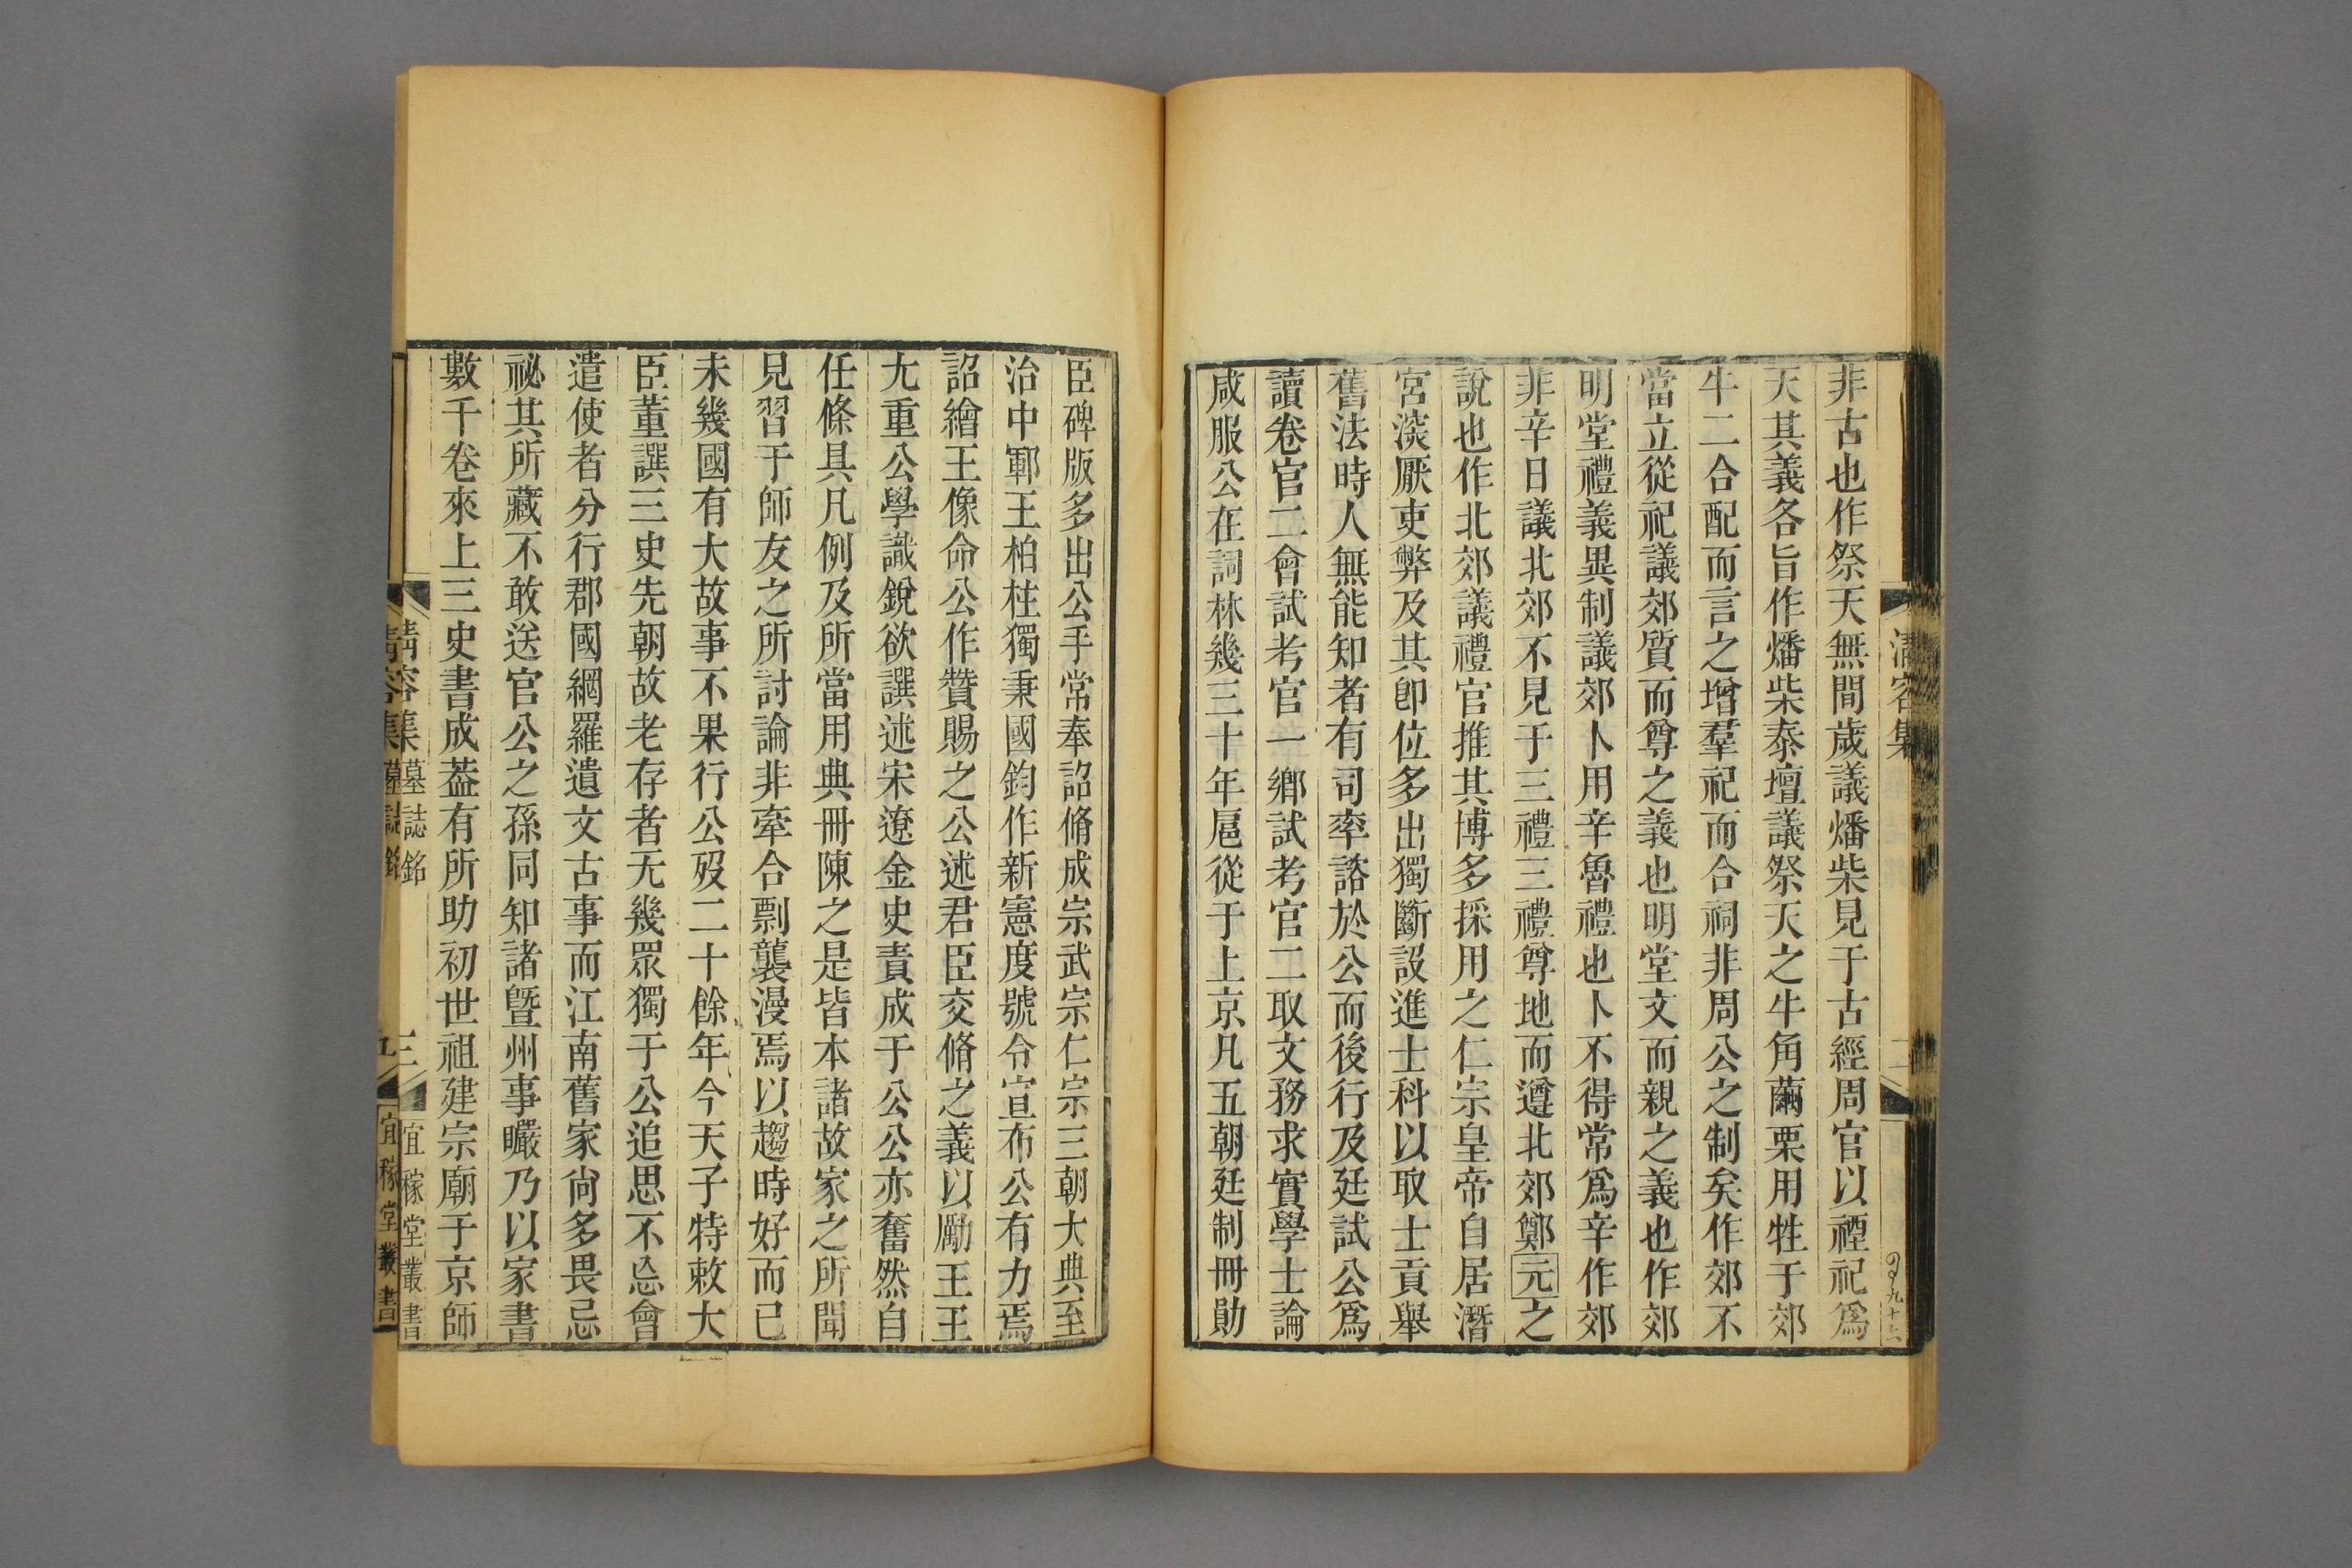 清容集
二
非古也作祭天無間歲議燔柴見于古經周官以禋祀爲
天其義各旨作燔柴泰壇議祭天之牛角繭栗用牲于郊
牛二合配而言之增羣祀而合祠非周公之制矣作郊不
當立從祀議郊質而尊之義也明堂文而親之義也作郊
明堂禮義異制議郊卜用辛魯禮也卜不得常爲辛作郊
非辛日議北郊不見于三禮三禮尊地而遵北郊鄭元之
說也作北郊議禮官推其博多採用之仁宗皇帝自居潛
宮深厭吏弊及其卽位多出獨斷設進士科以取士貢舉
舊法時人無能知者有司率諮於公而後行及廷試公爲
讀卷官二會試考官一鄉試考官二取文務求實學士論
咸服公在詞林幾三十年扈從于上京凡五朝廷制冊勛
臣碑版多出公手常奉詔脩成宗武宗仁宗三朝大典至
治中鄆王柏柱獨秉國鈞作新憲度號令宣布公有力焉
詔繪王像命公作贊賜之公述君臣交脩之義以勵王王
尤重公學識銳欲譔述宋遼金史責成于公公亦奮然自
任條具凡例及所當用典冊陳之是皆本諸故家之所聞
見習于師友之所討論非牽合剽襲漫焉以趨時好而已
未幾國有大故事不果行公歿二十餘年今天子特敕大
臣董譔三史先朝故老存者无幾眾獨于公追思不忘會
遣使者分行郡國網羅遺文古事而江南舊家尙多畏忌
祕其所藏不敢送官公之孫同知諸曁州事㬙乃以家書
數千卷來上三史書成葢有所助初世祖建宗廟于京師
清容集 墓誌銘
三
宜稼堂叢書